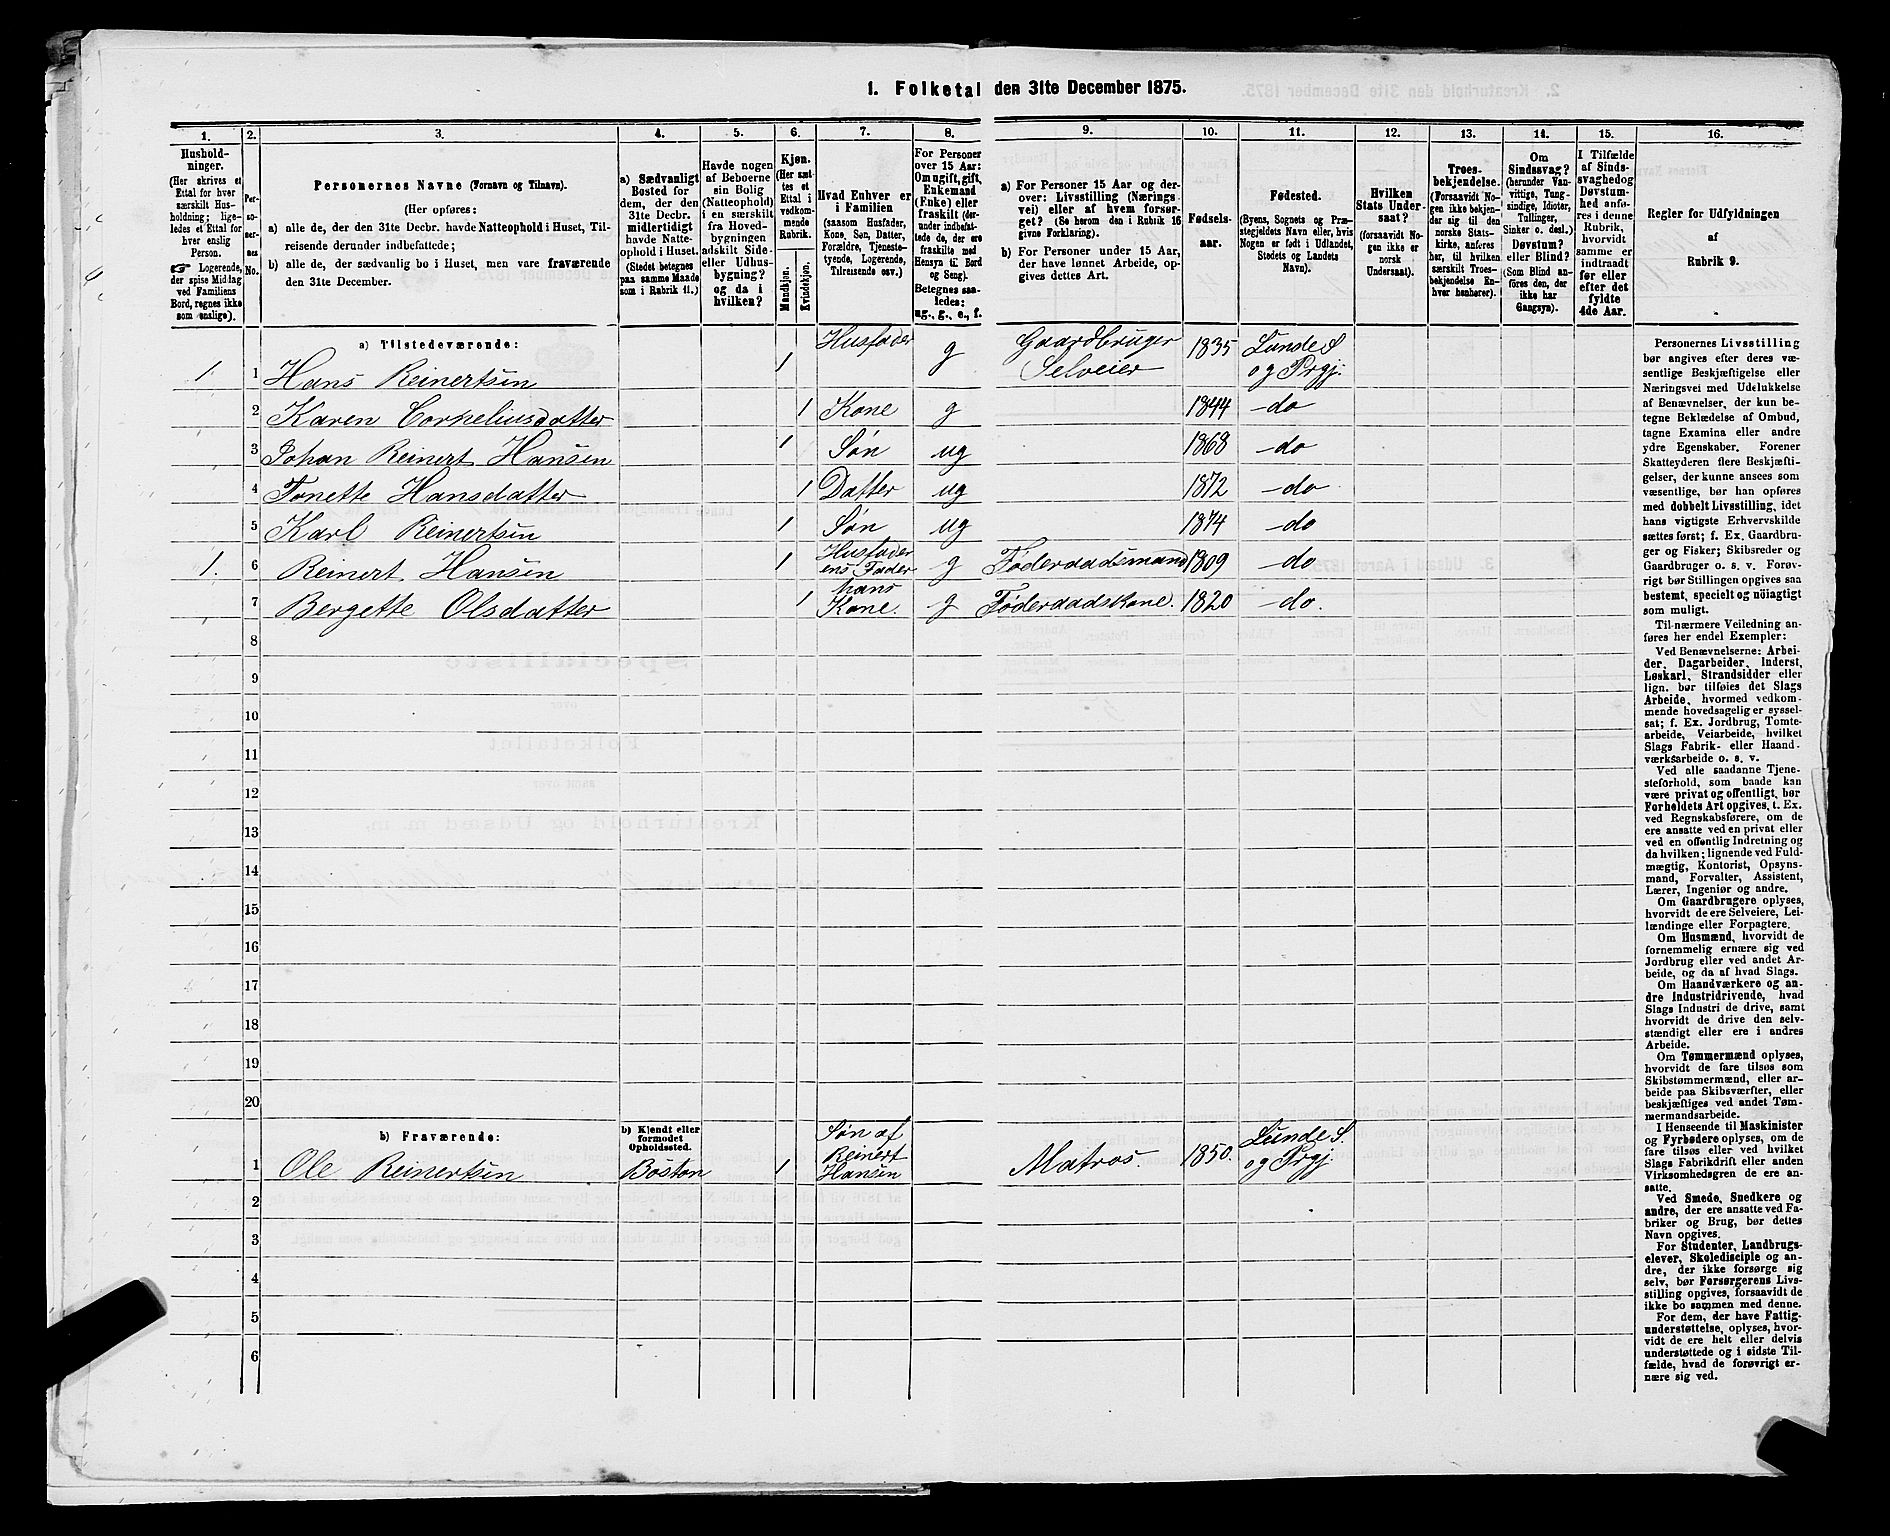 1. Folketal den 31te December 1875.
1. 2. 3. 4. 5. 6. 7. 8. 9. 10. 11. 12. 13. 14. 15. 16.
Hushold-
ninger.
(Her skrives et
Ettal for hver
særskilt Hus-
holdning; lige-
ledes et Ettal for
hver enslig
Person.
☞ Logerende,
der spise Middag
ved Familiens
Bord, regnes ikke
som enslige).
Per-
so-
ner-
nes
No.
Personernes Navne (Fornavn og Tilnavn).
(Her opføres:
a) alle de, der den 31te Decbr. havde Natteophold i Huset, Til-
reisende derunder indbefattede;
b) alle de, der sædvanlig bo i Huset, men vare fraværende
den 31te December.
a) Sædvanligt
Bosted for
dem, der den
31te Decbr.
midlertidigt
havde Natte-
ophold i Huset.
(Stedet betegnes
paa samme Maade
som i Rubrik 11.)
Havde nogen
af Beboerne
sin Bolig
(Natteophold)
i en særskilt
fra Hoved-
bygningen
adskilt Side-
eller Udhus-
bygning?
og da i
hvilken?
Kjøn.
(Her sæt-
tes et
Ettal i
vedkom-
mende
Rubrik.
Mandkjøn.
Kvindekjøn.
Hvad Enhver er
i Familien
(saasom Husfader,
Kone, Søn, Datter,
Forældre, Tjeneste-
tyende, Logerende,
Tilreisende osv.)
For Personer
over 15 Aar:
Om ugift, gift,
Enkemand
(Enke) eller
fraskilt (der-
under indbefat-
tede de, der ere
fraskilte med
Hensyn til Bord
og Seng)
Betegnes saa-
ledes:
ug., g., e., f.
a) For Personer 15 Aar og der-
over: Livsstilling (Nærings-
vei) eller af hvem forsør-
get? (Se herom den i Rubrik 16
givne Forklaring).
b) For Personer under 15 Aar,
der have lønnet Arbeide, op-
gives dettes Art.
Fødsels-
aar.
Fødested.
(Byens, Sognets og Præ-
stegjeldets Navn eller, hvis
Nogen er født i Udlandet,
Stedets og Landets
Navn).
Hvilken
Stats Under-
saat?
(forsaavidt No-
gen ikke er
norsk
Undersaat).
Troes-
bekjendelse.
(Forsaavidt No-
gen ikke bekjen-
der sig til den
norske Stats-
kirke, anføres
her, til hvilken
særskilt Troes-
bekjendelse En-
hver henhører).
Om
Sindssvag?
(herunder Van-
vittige, Tung-
sindige, Idioter,
Tullinger,
Sinker o. desl.)
Døvstum?
eller Blind?
(Som Blind an-
føres den, der
ikke har
Gangsyn).
I Tilfælde
af Sinds-
svaghed og
Døvstum-
hed anfø-
res i denne
Rubrik,
hvorvidt
samme er
indtraadt
før eller
efter det
fyldte
4de Aar.
Regler for Udfyldningen
af
Rubrik 9.
a) Tilstedeværende:
1 1 Hans Reinertsen 1 Husfader g Gaardbruger Selveier 1835 Lunde S. og Prgj.
2 Karen Corneliusdatter 1 Kone g 1844 -do
3 Johan Reinert Hansen 1 Søn ug 1868 -do
4 Tonette Hansdatter 1 Datter ug 1872 -do
5 Karl Reinertsen 1 Søn ug 1874 -do
1. 6 Reinert Hansen 1 Husfader ens Fader g Føderaadsmand 1809 -do
7 Bergette Olsdatter 1 hans Kone. g Føderaadskone. 1820 -do.
8
9
10
11
12
13
14
15
16
17
18
19
20
b) Fraværende:
b) Kjendt eller
formodet
Opholdssted.
1 Ole Reinertsen Boston 1 Søn af Reinert Hansen Matros. 1850. Lunde S. og Prgj.
2
3
4
5
6
Personernes Livsstilling
bør angives efter deres væ-
sentlige Beskjæftigelse eller
Næringsvei med Udelukkelse
af Benævnelser, der kun be-
tegne Beklædelse af Ombud,
tagne Examina eller andre
ydre Egenskaber. Forener
Skatteyderen flere Beskjæfti-
gelser, der kunne ansees som
væsentlige, bør han opføres
med dobbelt Livsstilling, idet
hans vigtigste Erhvervskilde
sættes først; f. Ex. Gaardbru-
ger og Fisker; Skibsreder og
Gaardbruger o. s. v. Forøv-
rigt bør Stillingen opgives saa
bestemt, specielt og nöiagtigt
som muligt.
Til nærmere Veiledning an-
føres her endel Exempler:
Ved Benævnelserne: Arbei-
der, Dagarbeider, Inderst,
Løskarl, Strandsidder eller
lign. bør tilføies det Slags
Arbeide, hvormed vedkom-
mende hovedsagelig er syssel-
sat; f. Ex. Jordbrug, Tomte-
arbeide, Veiarbeide, hvilket
Slags Fabrik- eller Haand-
værksarbeide o. s. v.
Ved alle saadanne Tjene-
steforhold, som baade kan
være privat og offentligt, bør
Forholdets Art opgives, t. Ex.
ved Regnskabsførere, om de
ere ansatte ved en privat eller
ved en offentlig Indretning og
da hvilken; lignende ved Fuld-
mægtig, Kontorist, Opsyns-
mand, Forvalter, Assistent,
Lærer, Ingeniør og andre.
Om Gaardbrugere oplyses,
hvorvidt de ere Selveiere, Lei-
lændinge eller Forpagtere.
Om Husmænd, hvorvidt de
fornemmelig ernære sig ved
Jordbrug eller ved andet Ar-
beide, og da af hvad Slags.
Om Haandværkere og an-
dre Industridrivende, hvad
Slags Industri de drive, samt
hvorvidt de drive den selv-
stændigt eller ere i andres
Arbeide.
Om Tømmermænd oplyses,
hvorvidt de fare tilsøs som
Skibstømmermænd, eller ar-
beide paa Skibsværfter, eller
beskjæftiges ved andet Tøm-
mermandsarbeide.
I Henseende til Maskinister
og Fyrbødere oplyses, om de
fare tilsøs eller ved hvilket
Slags Fabrikdrift eller anden
Virksomhedsgren de ere an-
satte.
Ved Smede, Snedkere og
andre, der ere ansatte ved Fa-
briker og Brug, bør dettes
Navn opgives.
For Studenter, Landbrugs-
elever, Skoledisciple og an-
dre, der ikke forsørge sig
selv, bør Forsørgerens Livs-
stilling opgives, forsaavidt de
ikke bo sammen med denne.
For dem, der have Fattig-
understøttelse, oplyses, hvor-
vidt de ere helt eller delvis
understøttede og i sidste Til-
fælde, hvad de forøvrigt er-
nære sig ved.